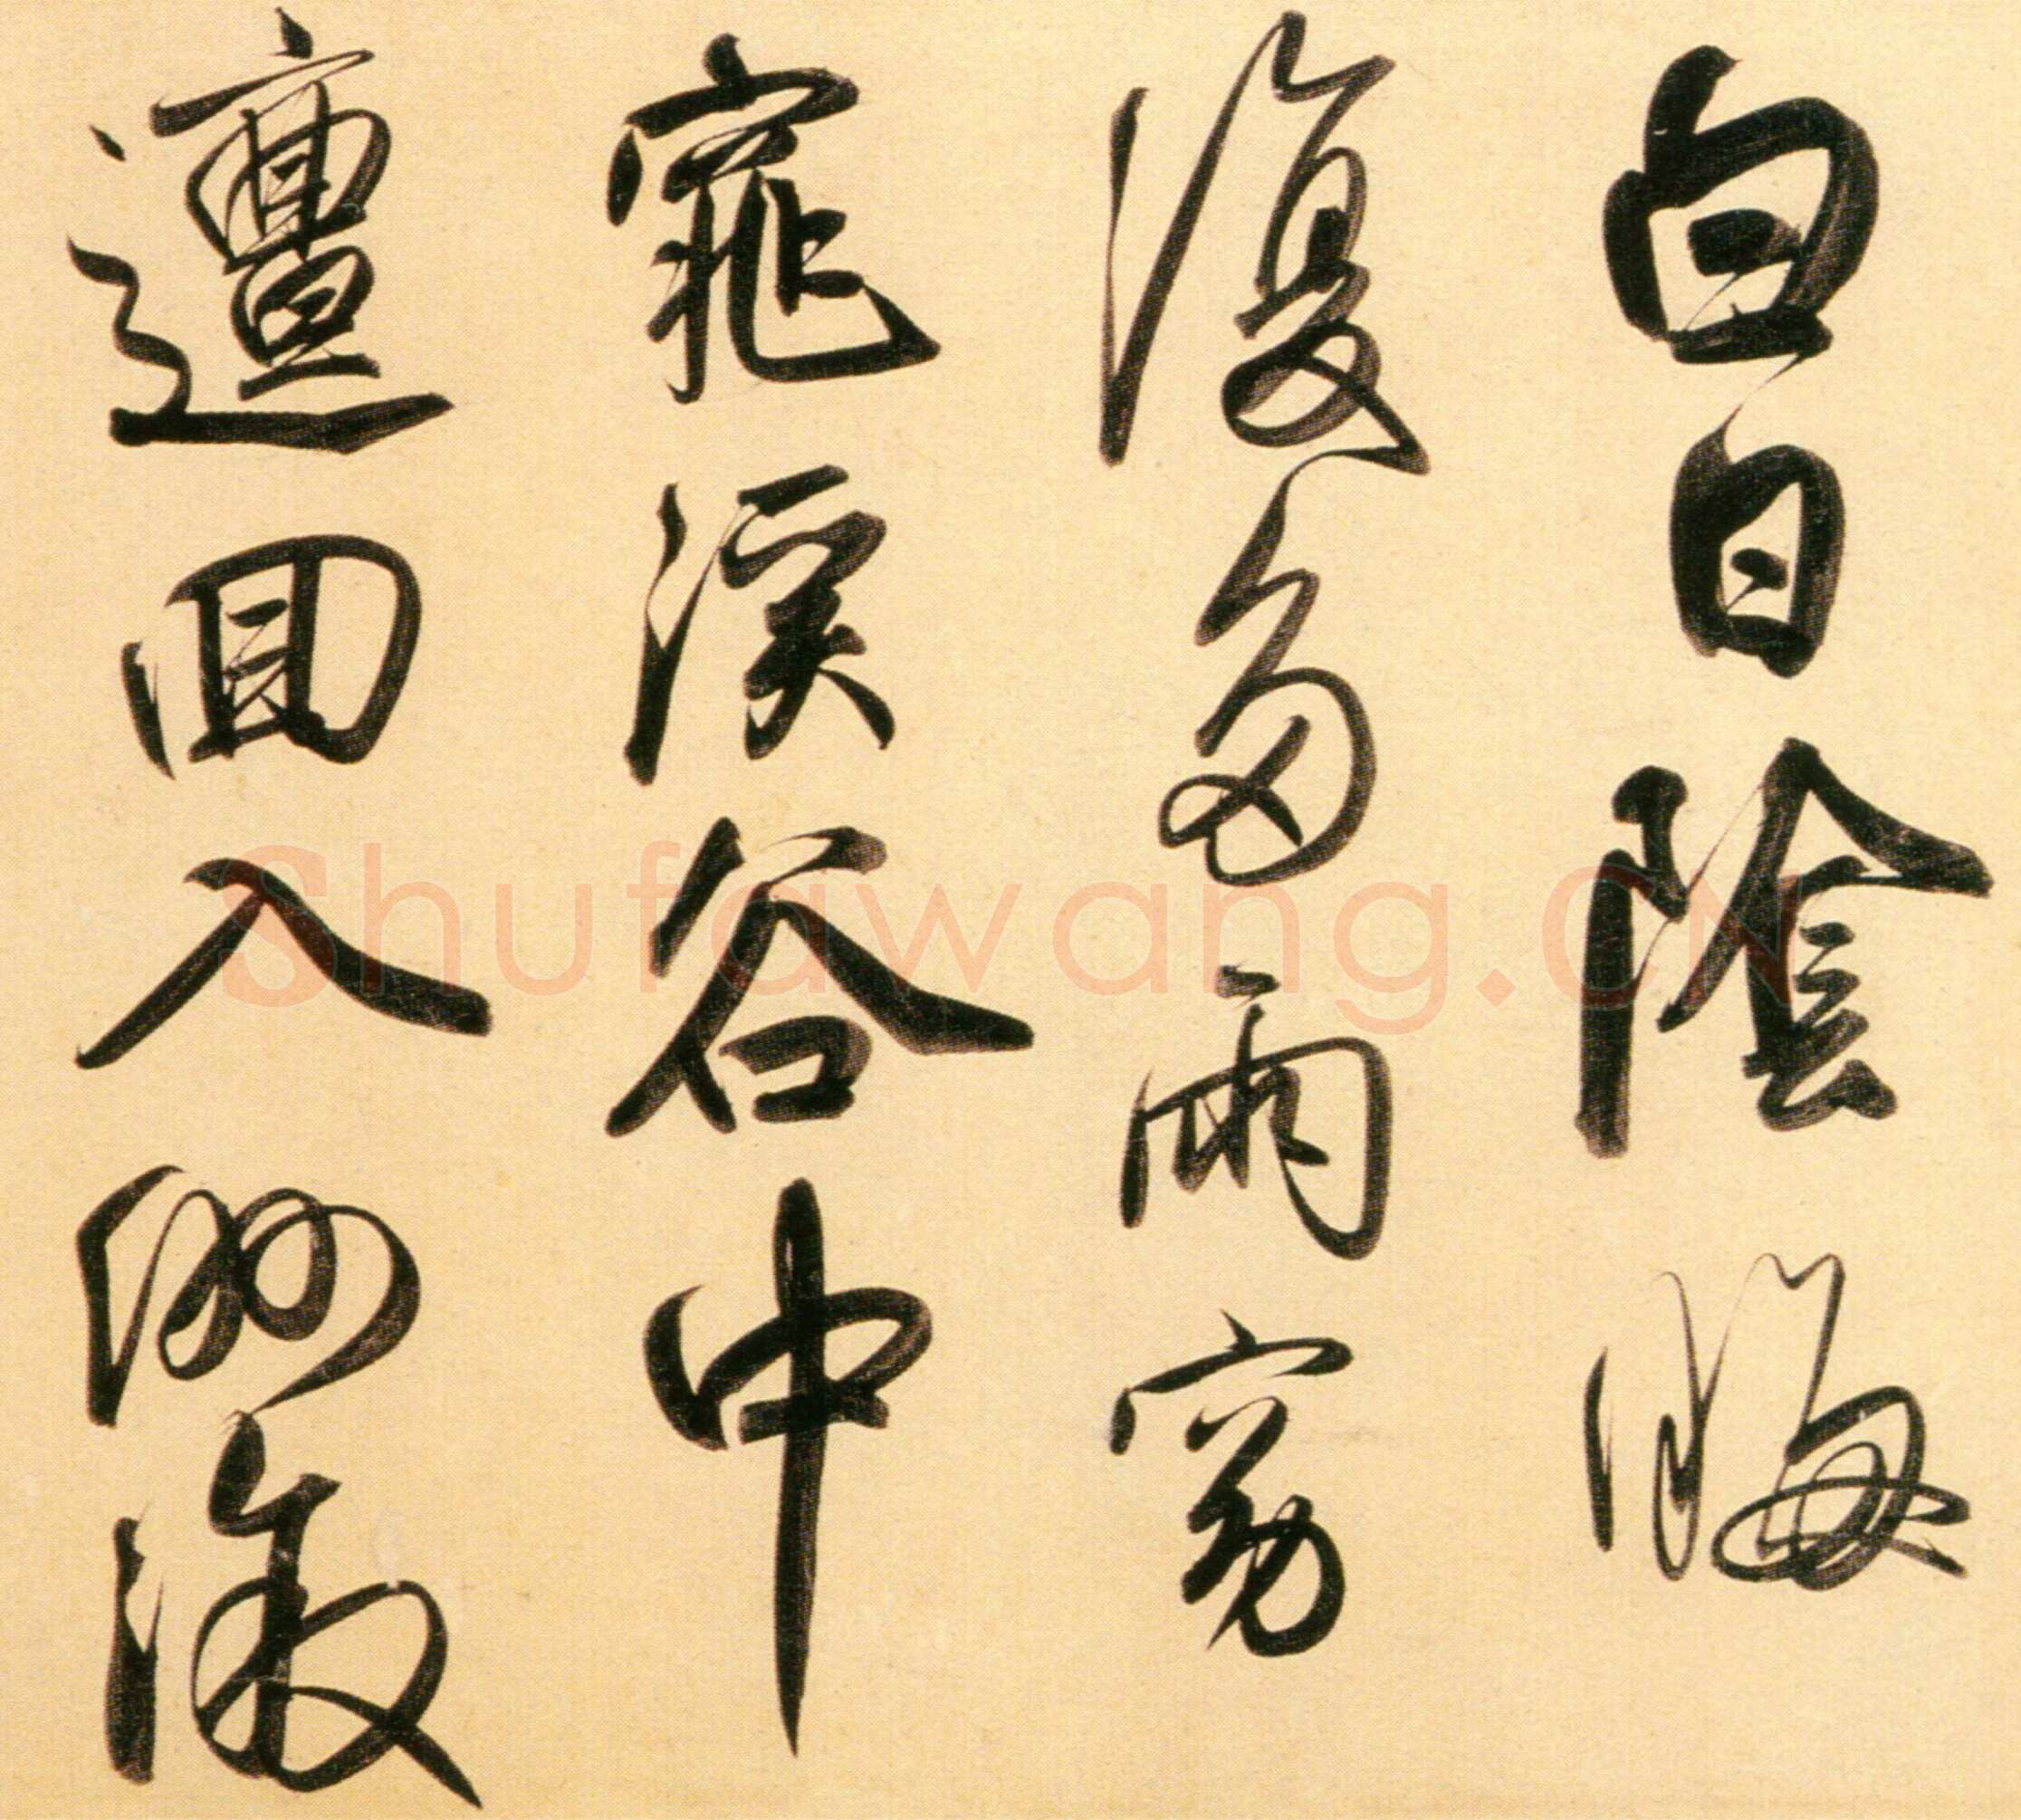 白日陰晦
復多雨窈
窕溪谷中
邅回入洲溆
Shufawang.CN